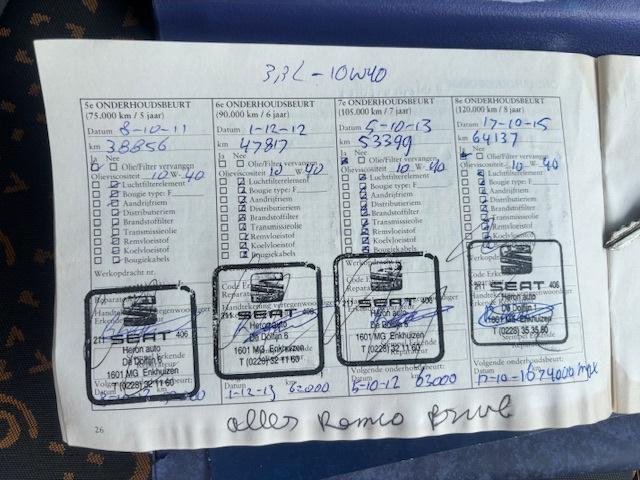 3,3L - 10W40
5e ONDERHOUDSBEURT
(75.000 km / 5 jaar)
Datum 8-10-11
km 38856
Ja Nee
Olie/Filter vervangen
Olieviscositeit 10 W-40
Luchtfilterelement
Bougie type: F
Aandrijfriem
Distributieriem
Brandstoffilter
Transmissieolie
Remvloeistof
Koelvloeistof
Bougiekabels
Werkopdracht nr.
SEAT
Heron auto
De Dolfijn 6
1601 MG Enkhuizen
T (0228) 32 11 60
6e ONDERHOUDSBEURT
(90.000 km / 6 jaar)
Datum 1-12-12
km 47817
Ja Nee
Olie/Filter vervangen
Olieviscositeit 10 40
Luchtfilterelement
Bougie type: F
Aandrijfriem
Distributieriem
Brandstoffilter
Transmissieolie
Remvloeistof
Koelvloeistof
Bougiekabels
211 SEAT 406
Heron auto
De Dolfijn 6
1601 MG Enkhuizen
T (0228) 32 11 60
Datum km
1-12-13
7e ONDERHOUDSBEURT
(105.000 km / 7 jaar)
Datum 5-10-13
km 53399
Ja Nee
Olie/Filter vervangen
Olieviscositeit 10 W 40
Luchtfilterelement
Bougie type: F
Aandrijfriem
Distributieriem
Brandstoffilter
Transmissieolie
Remvloeistof
Koelvloeistof
Bougiekabels
Werkopdracht
211 SEAT 406
Heron auto
De Dolfijn 6
1601 MG Enkhuizen
T (0228) 32 11 60
Volgende onderhoudsbeurt:
Datum km
5-10-12 63000
8e ONDERHOUDSBEURT
(120.000 km / 8 jaar)
Datum 17-10-15
km 64137
Ja Nee
Olie/Filter vervangen
Olieviscositeit 10 W 40
Luchtfilterelement
Bougie type: F
Aandrijfriem
Distributieriem
Brandstoffilter
Transmissieolie
Remvloeistof
Koelvloeistof
Bougiekabels
211 SEAT 406
Heron auto
De Dolfijn 6
1601 MG Enkhuizen
T (0228) 35 35 80
Volgende onderhoudsbeurt:
17-10-16 74000
26
alles Remco